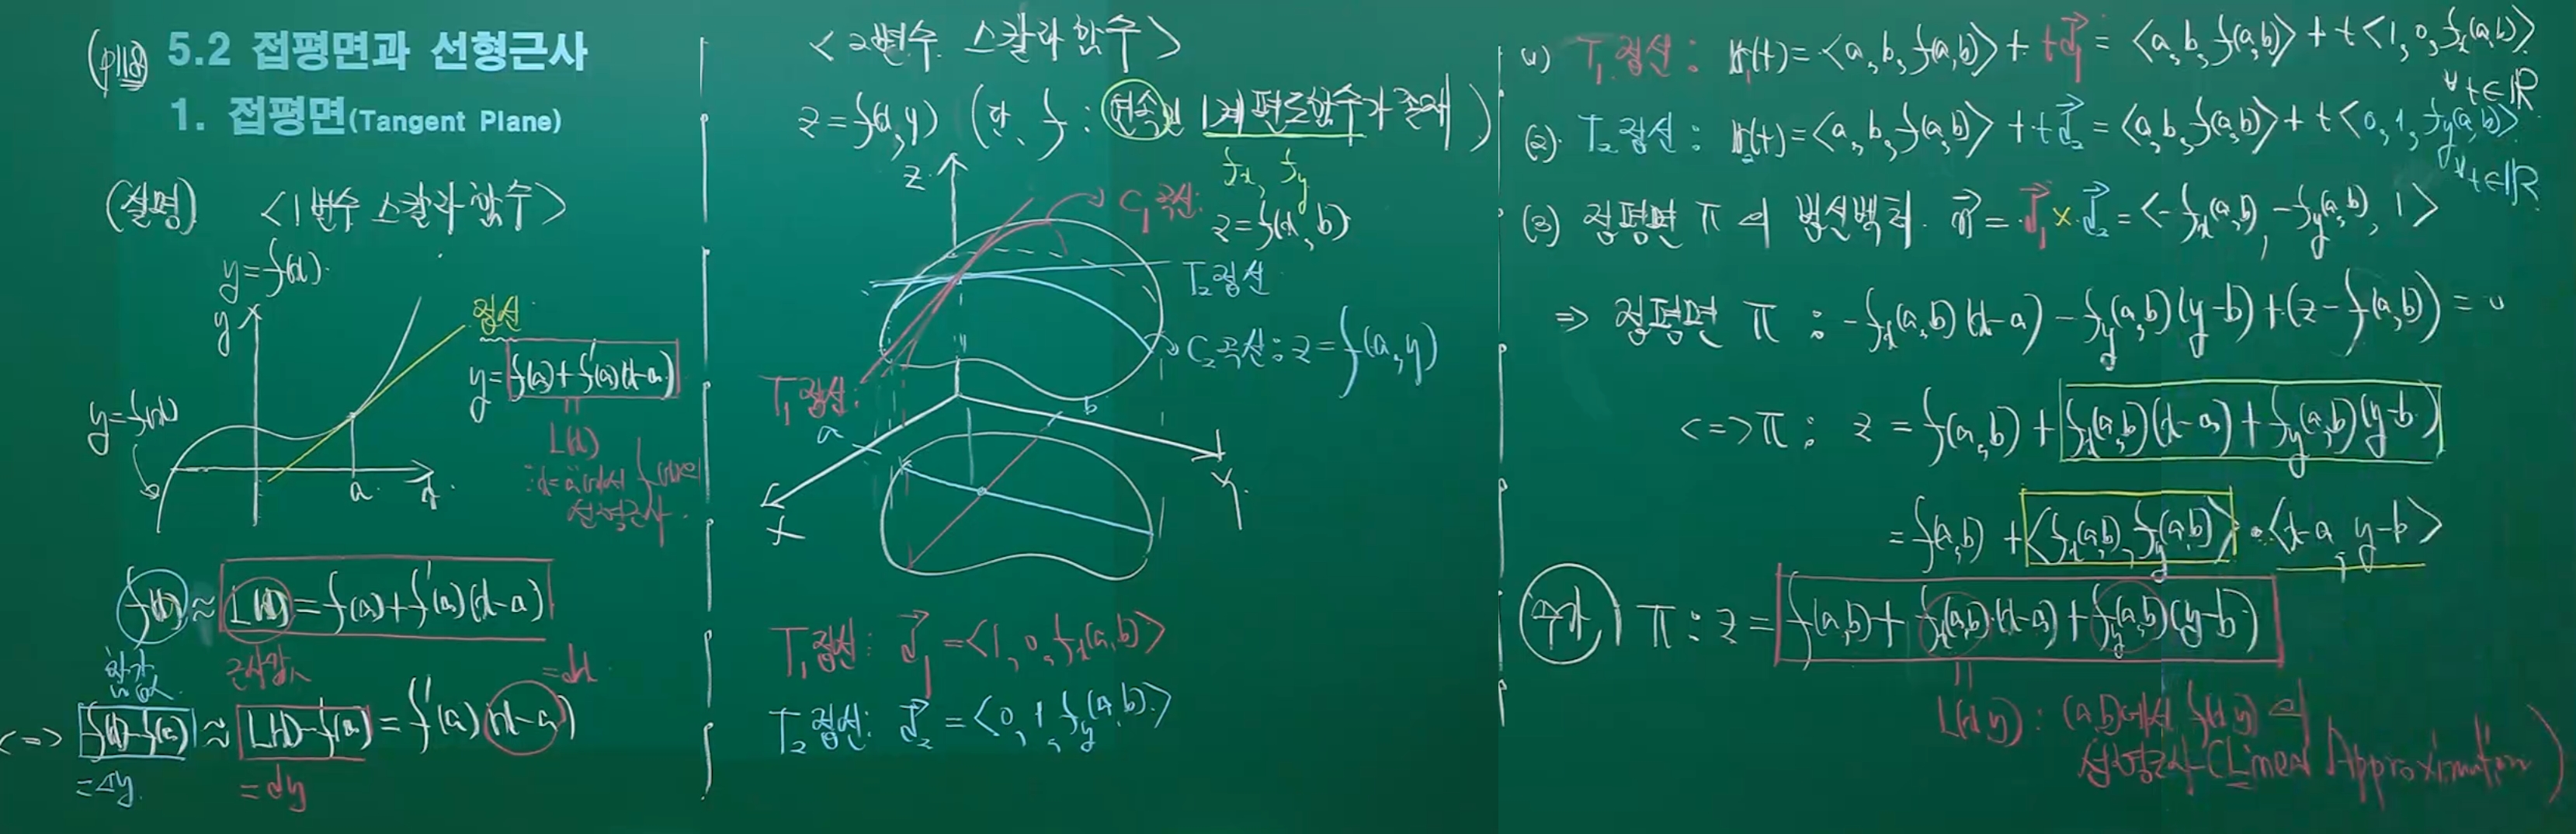 (p118) 5.2 접평면과 선형근사
1. 접평면(Tangent Plane)
(설명) <1변수 스칼라 함수>
y=f(x).
y
접선
y=f(a)+f'(a)(x-a)
y=f(x)
L(x)
: x=a에서 f(x)의
선형근사
a
x
f(x) ≈ L(x) = f(a)+f'(a)(x-a)
근사값
=dx
<=> f(x)-f(a) ≈ L(x)-f(a) = f'(a)(x-a)
=Δy
=dy
<2변수 스칼라 함수>
z=f(x,y) (단, f : 연속인 1계 편도함수가 존재)
fx, fy
z
C₁곡선:
z=f(x,b)
T₂접선
C₂곡선: z=f(a,y)
T₁접선:
a
b
x
y
T₁접선: d₁ = <1, 0, fx(a,b)>
T₂접선: d₂ = <0, 1, fy(a,b)>
(1) T₁접선 : r₁(t)= <a, b, f(a,b)> + td₁ = <a, b, f(a,b)> + t<1, 0, fx(a,b)>
∀t∈ℝ
(2) T₂접선 : r₂(t)= <a, b, f(a,b)> + td₂ = <a, b, f(a,b)> + t<0, 1, fy(a,b)>
∀t∈ℝ
(3) 접평면 π의 법선벡터 n = d₁ × d₂ = <-fx(a,b), -fy(a,b), 1>
=> 접평면 π : -fx(a,b)(x-a) - fy(a,b)(y-b) + (z-f(a,b)) = 0
<=> π : z = f(a,b) + fx(a,b)(x-a) + fy(a,b)(y-b)
= f(a,b) + <fx(a,b), fy(a,b)> · <x-a, y-b>
π : z = f(a,b) + fx(a,b)·(x-a) + fy(a,b)(y-b)
L(x,y) : (a,b)에서 f(x,y)의
선형근사(Linear Approximation)